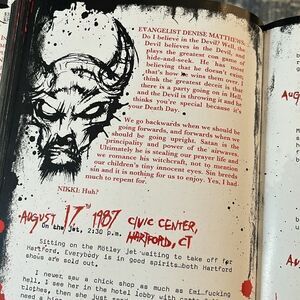 EVANGELIST DENISE MATTHEWS:
Do I believe in the Devil? Well, the
Devil believes in the Devil, and
plays the greatest con game of
hide-and-seek. He has you
believing that he doesn't exist,
that's how he wins them over. I
think the greatest deceit is that
there is a party going on in Hell
and the Devil is throwing it and he
thinks you're special because it's
your Death Day.
We go backwards when we should be
going forwards, and forwards when we
should be going upright. Satan is the
principality and power of the airwaves.
Ultimately he is stealing our prayer life and
we romance his witchcraft, not to mention
our children's tiny innocent eyes. Sin breeds
sin and it is nothing for us to enjoy. Yes, I had
much to repent for.
NIKKI: Huh?
AUGUST 17TH 1987 CIVIC CENTER,
HARTFORD, CT
On the jet, 2:30 p.m.
Sitting on the Mötley jet waiting to take off for
Hartford. Everybody is in good spirits—both Hartford
shows are sold out,
I never saw a chick shop as much as Emi…fucking
hell, I see her in the hotel lobby with
clothes, then she just
need a
AUG